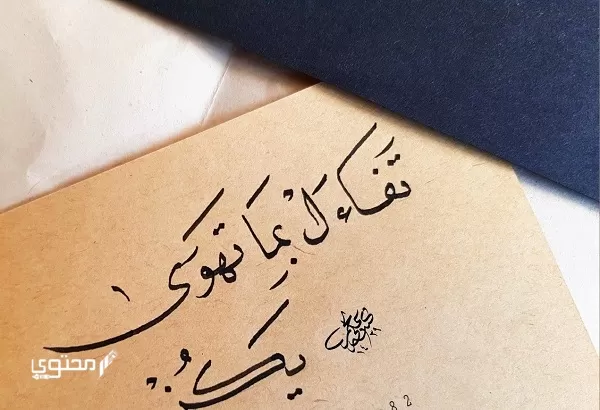 تَفَاءَلْ بِمَا تَهْوَى
يَكُنْ
82
محتوى